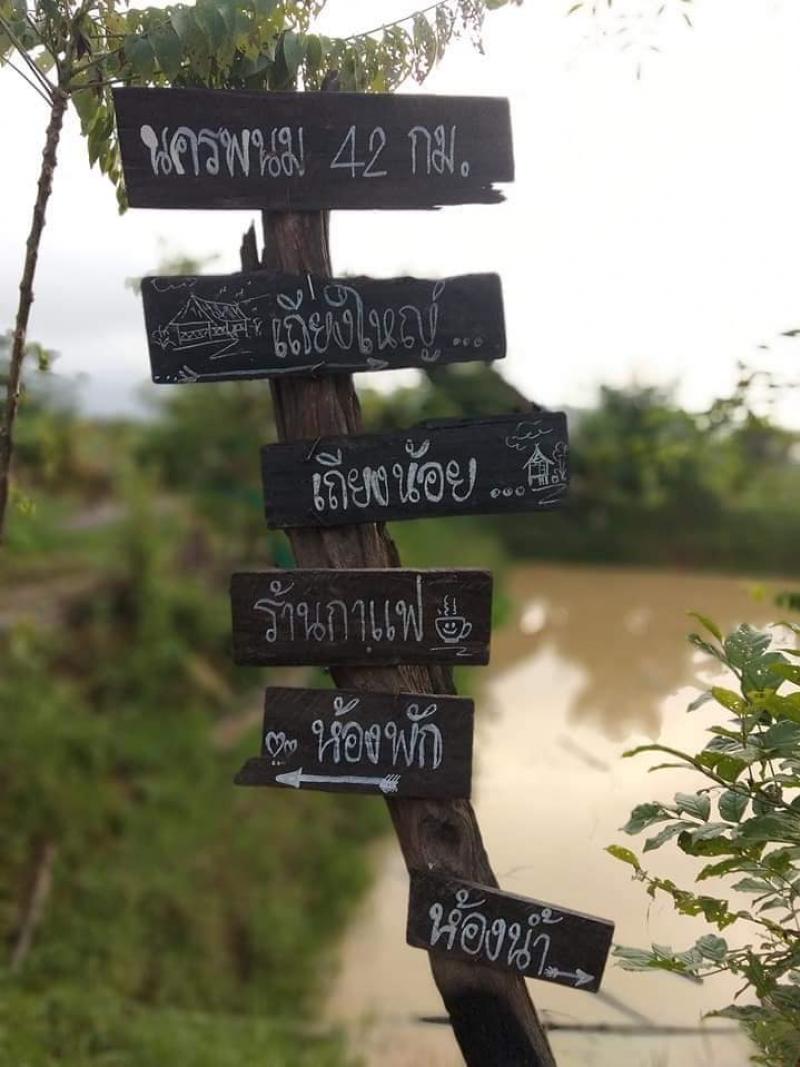 นครพนม 42 กม.
เถียงใหญ่...
เถียงน้อย...
ร้านกาแฟ
ห้องพัก
ห้องน้ำ